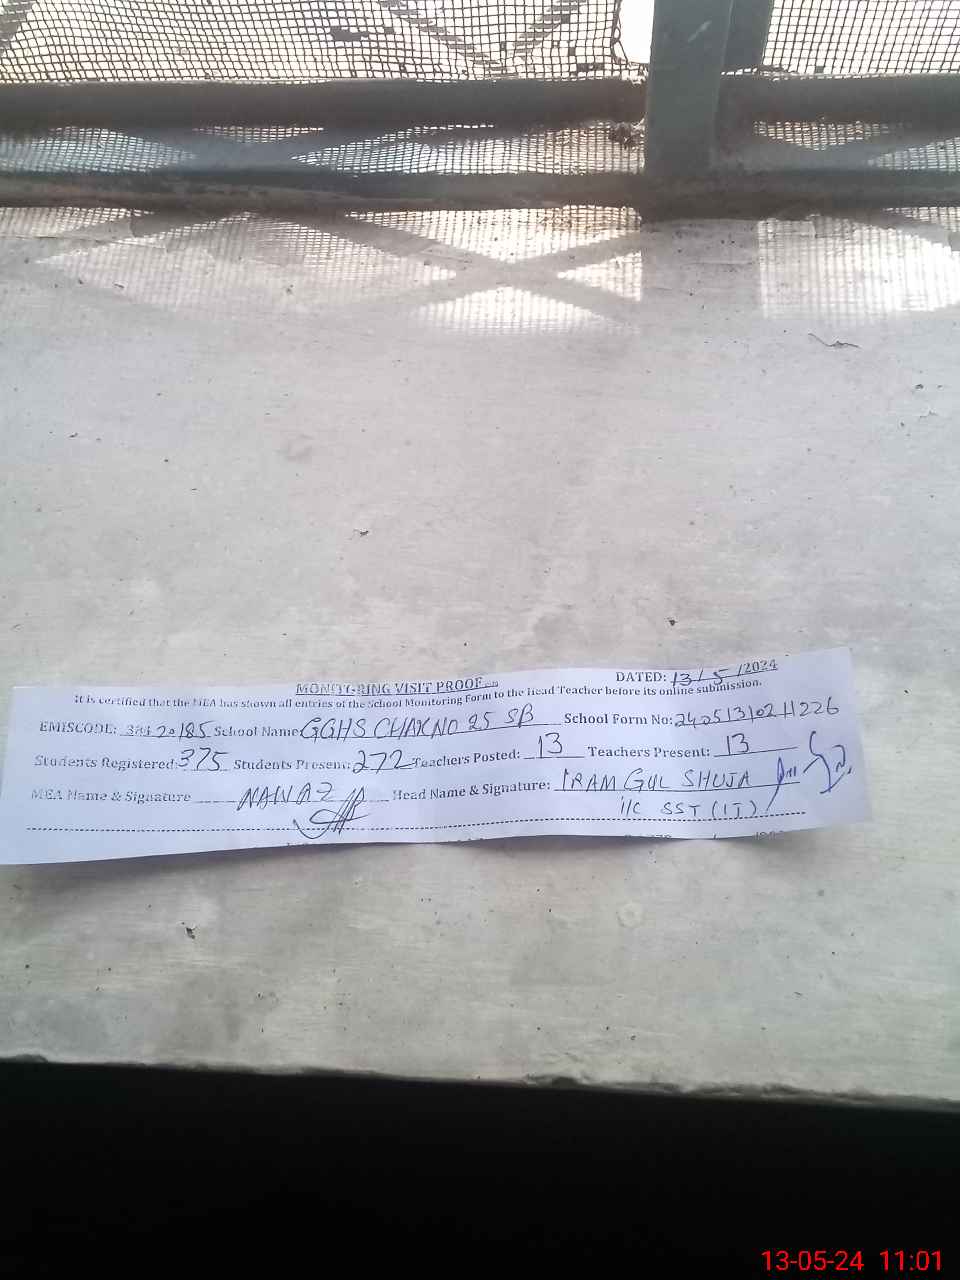 MONITORING VISIT PROOF
DATED: 13/5/2024
It is certified that the MEA has shown all entries of the School Monitoring Form to the Head Teacher before its online submission.
EMISCODE: 38420185 School Name: GGHS CHAK NO 25 SB School Form No: 24051310211226
Students Registered: 375 Students Present: 272 Teachers Posted: 13 Teachers Present: 13
MEA Name & Signature NAWAZ Head Name & Signature: IRAM GUL SHUJA
i/c SST (IT)
13-05-24 11:01